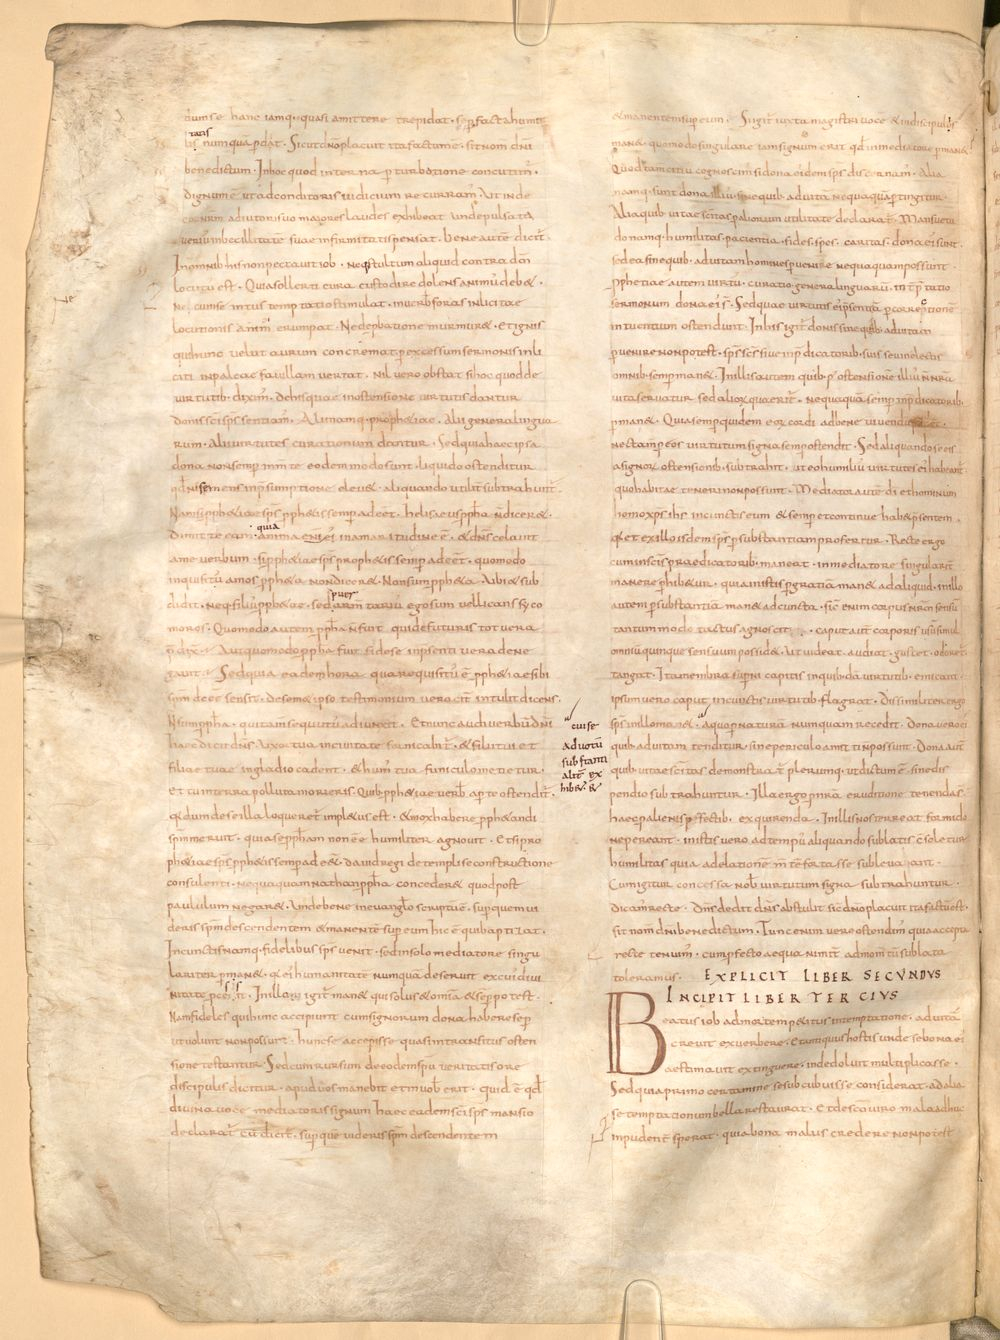 dum se hanc iamq· quasi amittere trepidat· sep facta humili
tatis
numquā pdat· Sicut dno placuit ita factum ē· sit nom dni
benedictum· In hoc quod interna pturbatione concutim̄·
dignum ē ut ad conditoris iudicium recurram̄· Ut inde
adiutori suo maiores laudes exhibeat unde pulsata
verius imbecillitatē suae infirmitatis pensat· bene autē dicit̄·
In omnib his non peccavit iob· neq stultum aliquid contra dm̄
locutus est· Quia sollerti cura custodire dolens animus debet·
ne cum se intus temptatio stimulat· in verb foras inlicitae
locutionis anim̄ erumpat· Ne de pbatione murmuret· Et ignis
qui hunc velut aurum concremat p excessum sermonis inli
citi in paleae favillam vertat· Nil vero obstat si hoc quod de
virtutib· dixim̄· de his quae in ostensione virtutis dantur
donis sci sps sentiam̄· Alii namq· prophetiae· Alii genera lingua
rum· Alii virtutes curationum dantur· Sed quia haec ipsa
dona non semp in mente eodem modo sunt· liquido ostenditur
qd ne se mens in psumptione elevet· aliquando utilit̄ subtrahunt̄·
Nam si pphetiae sps pphetis semp adeēt· heliseus ppha n diceret·
quia
Dimitte eam· anima enī ei in amaritudine ē· & dns celavit
a me verbum· Si pphetiae sps prophetis semp adeēt· quomodo
inquisitus amos ppheta non diceret· Non sum ppheta· Ubi & sub
puer
didit· neq· filius pphetae· sed armentarius ego sum vellicans syco
moros· Quomodo autem ppha n fuit· qui de futuris tot vera
pdix̄· Aut quomodo ppha fuit si de se in psenti vera dene
gavit· Sed quia eadem hora qua requisitus ē pphetiae sibi
spm deēe sensit· de semet ipso testimonium veracit̄ intulit dicens·
N sum ppha· qui tam sequitus adiunxit· Et nunc audi verbū dni
haec dicit dns· Uxor tua in civitate fornicabit̄· & filii tui et
filiae tuae in gladio cadent· & humus tua funiculo metietur·
Et tu in terra polluta morieris· Quib· pphetiae verb apte ostendit̄·
qd dum de se illa loqueret̄ impletus est· & mox habere pphetandi
spm meruit· quia se ppham non eē humiliter agnovit· Et si pro
phetiae sps pphetis semp adeēt· david regi de templi se constructione
consulenti· nequaquam nathan ppha concederet quod post
paululum negaret· Unde bene in evanglo scriptū ē· sup quem vi
deris spm descendentem & manentē sup eum hic ē qui baptizat·
In cunctis namq· fidelibus sps venit· sed in solo mediatore singu
lariter pmanet· qd ei humanitate numquā deseruit ex cui divi
nitate pcessit· In illo igit̄ manet qui solus & omnia & semp potest·
Nam fideles qui hunc accipiunt cum signorum dona habere semp
ut volunt non possunt· hunc se accepisse quasi in transitus osten
sione testantur· Sed cum rursum de eodem spu veritatis ore
discipulis dicitur· apud vos manebit et in vob erit· quid ē qd
divina voce mediatoris signum haec eadem sci sps mansio
declarat̄ cū dicit̄· sup que videris spm descendentem
cui se
ad votū
substanti
alit̄ ex
hibet·
& manentem sup eum· Si igit̄ iuxta magistri voce & in discipulis
manet· quomodo singulare iam signum erit qd in mediatore pmanet·
Quod tam citius cognoscim̄ si dona eidem sps discernam̄· Alia
namq· sunt dona illius sine quib· ad vitā nequaquā ptingitur·
Alia quib· vitae scitas p aliorum utilitate declarat̄· Mansuetu
do namq· humilitas· pacientia· fides· spes· caritas· dona ei sunt·
sed ea sine quib· ad vitam homines pvenire nequaquam possunt·
pphetiae autem virtus· curatio· genera linguarū· inptatio
sermonum dona ei s̄· Sed quae virtutis ei psentiā p correptione
intuentium ostendunt· In his igit̄ donis sine quib· ad vitam
pvenire non potest· sps scs sive in pdicatorib· suis seu in electis
omnib· semp manet· In illis autem quib· p ostensionē illius n nra
vita servatur sed alior quaerit̄· nequaquā semp in pdicatorib·
pmanet· Quia semp quidem eor cordi ad bene vivendū pest·
nec tamp eos virtutum signa semp ostendit· Sed aliquando se eis
a signor ostensionib· subtrahit· ut eo humilius virtutes ei habeant̄·
quo habitae teneri non possunt· Mediator autē di et hominum
homo xps ihs in cunctis eum & semp et continue habet psentem·
qd et ex illo isdem sps p substantiam profertur· Recte ergo
cum in scis praedicatorib· maneat· in mediatore singularit̄
manere phibetur· quia in istis p gratiam manet ad aliquid· in illo
autem p substantiā manet ad cuncta· sic̄ enim corpus nrm sensu
tantummodo tactus agnoscit· caput aut̄ corporis usū simul
omniū quinque sensuum possidet· Ut videat· audiat· gustet· odoret·
tangat· Ita membra supni capitis in quib·dā virtutib· emicant·
ipsum vero caput in cunctis virtutib· flagrat· Dissimiliter ergo
sps in illo manet· a quo p naturā numquam recedit· Dona vero ei
quib· ad vitam tenditur· sine periculo amitti n possunt· Dona aut̄
quib· vitae scitas demonstrat̄· plerumq· ut dictum ē· sine dis
pendio subtrahuntur· Illa ergo p nra eruditione tenenda s̄
haec p alienis pfectib· exquirenda· In illis nos terreat formido
ne pereant· in istis vero ad tempus aliquando sublatis c̄soletur
humilitas quia ad elationē mtē fortasse sublevarant·
Cum igitur concessa nob virtutum signa subtrahuntur·
dicam recte· Dns dedit dns abstulit sic̄ dno placuit ita factū est·
sit nom dni benedictum· Tunc enim vere ostendim̄ quia accepta
recte tenuim̄· cum pfecto aequanimit̄ ad momtū sublata
toleramus· EXPLICIT LIBER SECVNDVS
INCIPIT LIBER TERCIVS
Beatus iob ad mortem petitus in temptatione· ad vitā
crevit ex verbere· Et antiquus hostis unde se bona ei
aestimavit extinguere· inde doluit multiplicasse·
Sed quia primo certamine se subcubuisse considerat· ad alia
se temptationum bella restaurat· Et de sco viro mala adhuc
inpudent̄ sperat· quia bona malus credere non potest